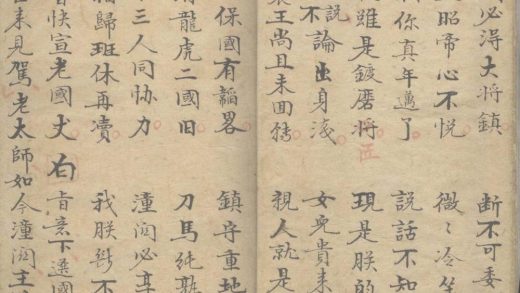 必得大将鎮 断不可委
昭帝心不悦 微〻冷笑
你真年邁了 説話不知
雖是鍍磨将 現是朕的
不說論出身淺 女児貴未
王尚且未回轉 親人就是
保國有韜畧 鎮守重地
龍虎二國旧 刀馬純熟
三人同協力 潼関必享
歸班休再凟 我朕断不
快宣老國丈 右 旨意下選國
来見駕老太師如今潼関主